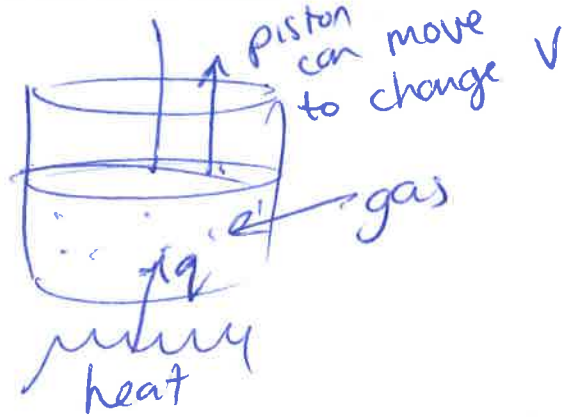 piston
can move
to change V
gas
q
heat